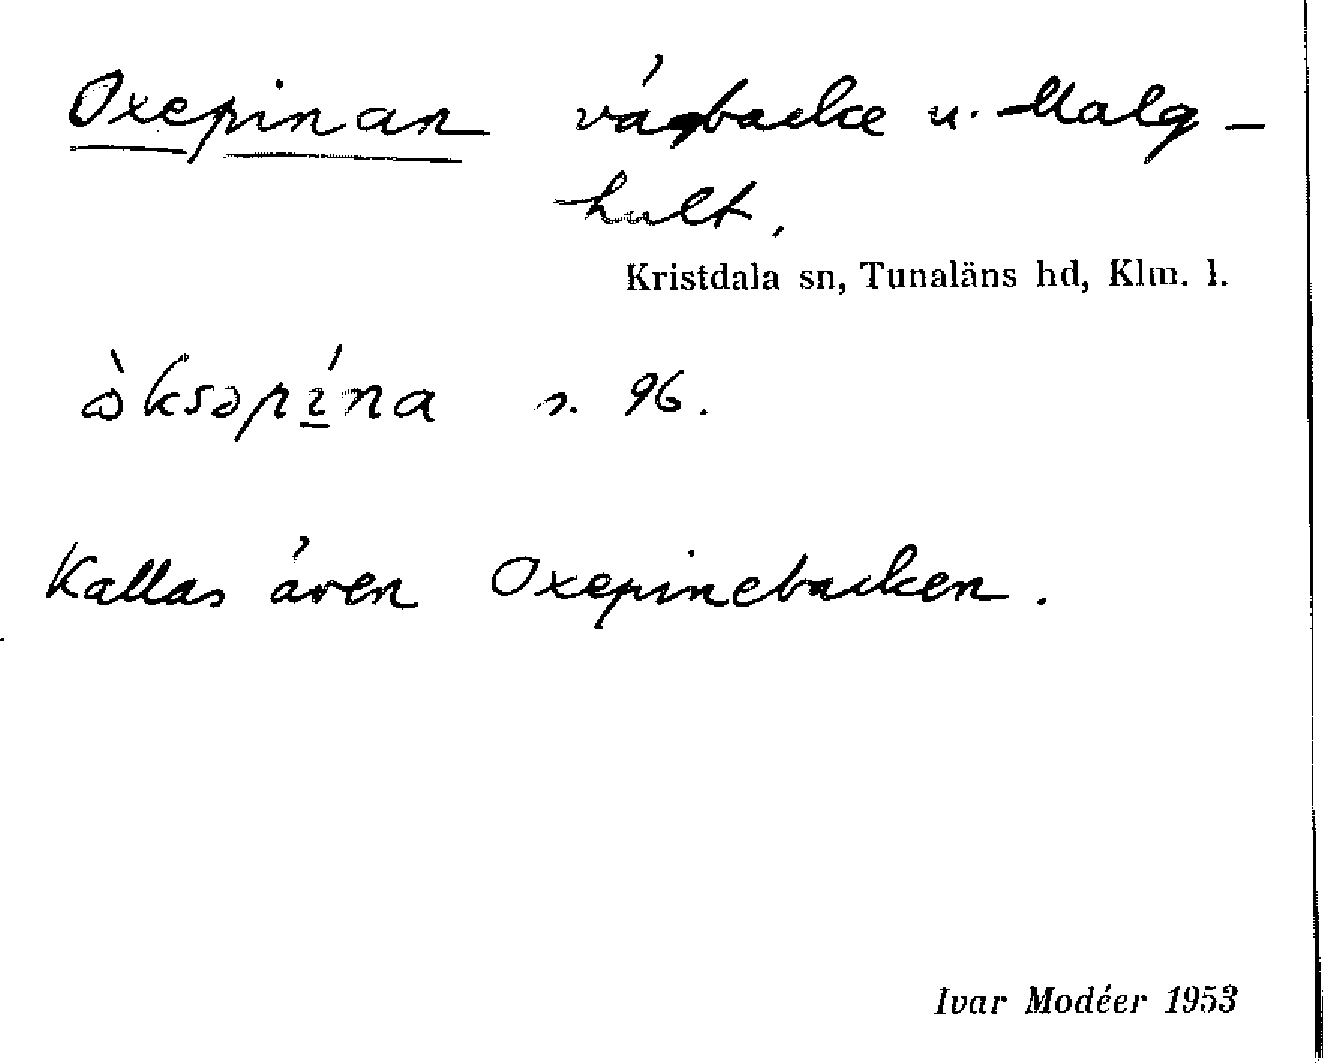 Oxepinan vägbacke u. Malg-
hult.
Kristdala sn, Tunaläns hd, Klm. l.
s. 96.
Kallas även Oxepinebacken.
Ivar Modéer 1953